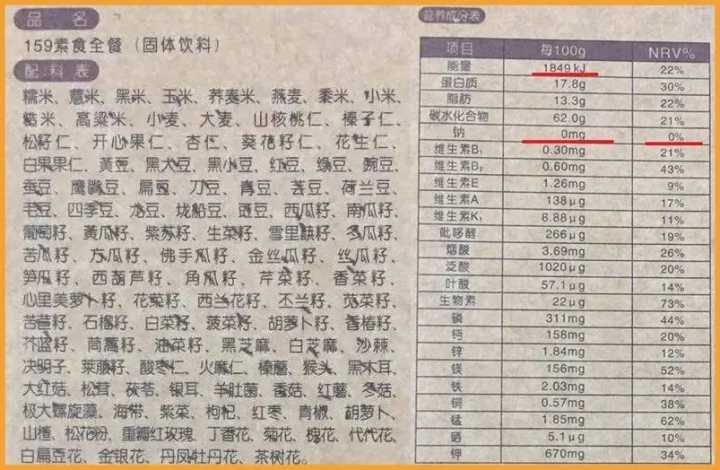 品 名
159素食全餐（固体饮料）
配 料 表
糯米、薏米、黑米、玉米、荞麦米、燕麦、黍米、小米、
糙米、高粱米、小麦、大麦、山核桃仁、榛子仁、
松籽仁、开心果仁、杏仁、葵花籽仁、花生仁、
白果果仁、黄豆、黑大豆、黑小豆、红豆、绿豆、豌豆、
蚕豆、鹰嘴豆、扁豆、刀豆、青豆、芸豆、荷兰豆、
毛豆、四季豆、龙豆、垅船豆、豇豆、西瓜籽、南瓜籽、
葡萄籽、黄瓜籽、紫苏籽、生菜籽、雪里蕻籽、冬瓜籽、
苦瓜籽、方瓜籽、佛手瓜籽、金丝瓜籽、丝瓜籽、
笋瓜籽、西葫芦籽、角瓜籽、芹菜籽、香菜籽、
心里美萝卜籽、花菜籽、西兰花籽、丕兰籽、苋菜籽、
苦苣籽、石榴籽、白菜籽、菠菜籽、胡萝卜籽、香椿籽、
芥蓝籽、茼蒿籽、油菜籽、黑芝麻、白芝麻、沙棘、
决明子、莱菔籽、酸枣仁、火麻仁、榛蘑、猴头、黑木耳、
大红菇、松茸、茯苓、银耳、羊肚菌、香菇、红蘑、冬菇、
极大螺旋藻、海带、紫菜、枸杞、红枣、青椒、胡萝卜、
山楂、松花粉、重瓣红玫瑰、丁香花、菊花、槐花、代代花、
白扁豆花、金银花、丹凤牡丹花、茶树花。
营养成分表
项目 每100g NRV%
能量 1849kJ 22%
蛋白质 17.8g 30%
脂肪 13.3g 22%
碳水化合物 62.0g 21%
钠 0mg 0%
维生素B₁ 0.30mg 21%
维生素B₂ 0.60mg 43%
维生素E 1.26mg 9%
维生素A 138μg 17%
维生素K₁ 8.88μg 11%
吡哆醛 266μg 19%
烟酸 3.69mg 26%
泛酸 1020μg 20%
叶酸 57.1μg 14%
生物素 22μg 73%
磷 311mg 44%
钙 158mg 20%
锌 1.84mg 12%
镁 156mg 52%
铁 2.03mg 14%
铜 0.57mg 38%
锰 1.85mg 62%
硒 5.1μg 10%
钾 670mg 34%